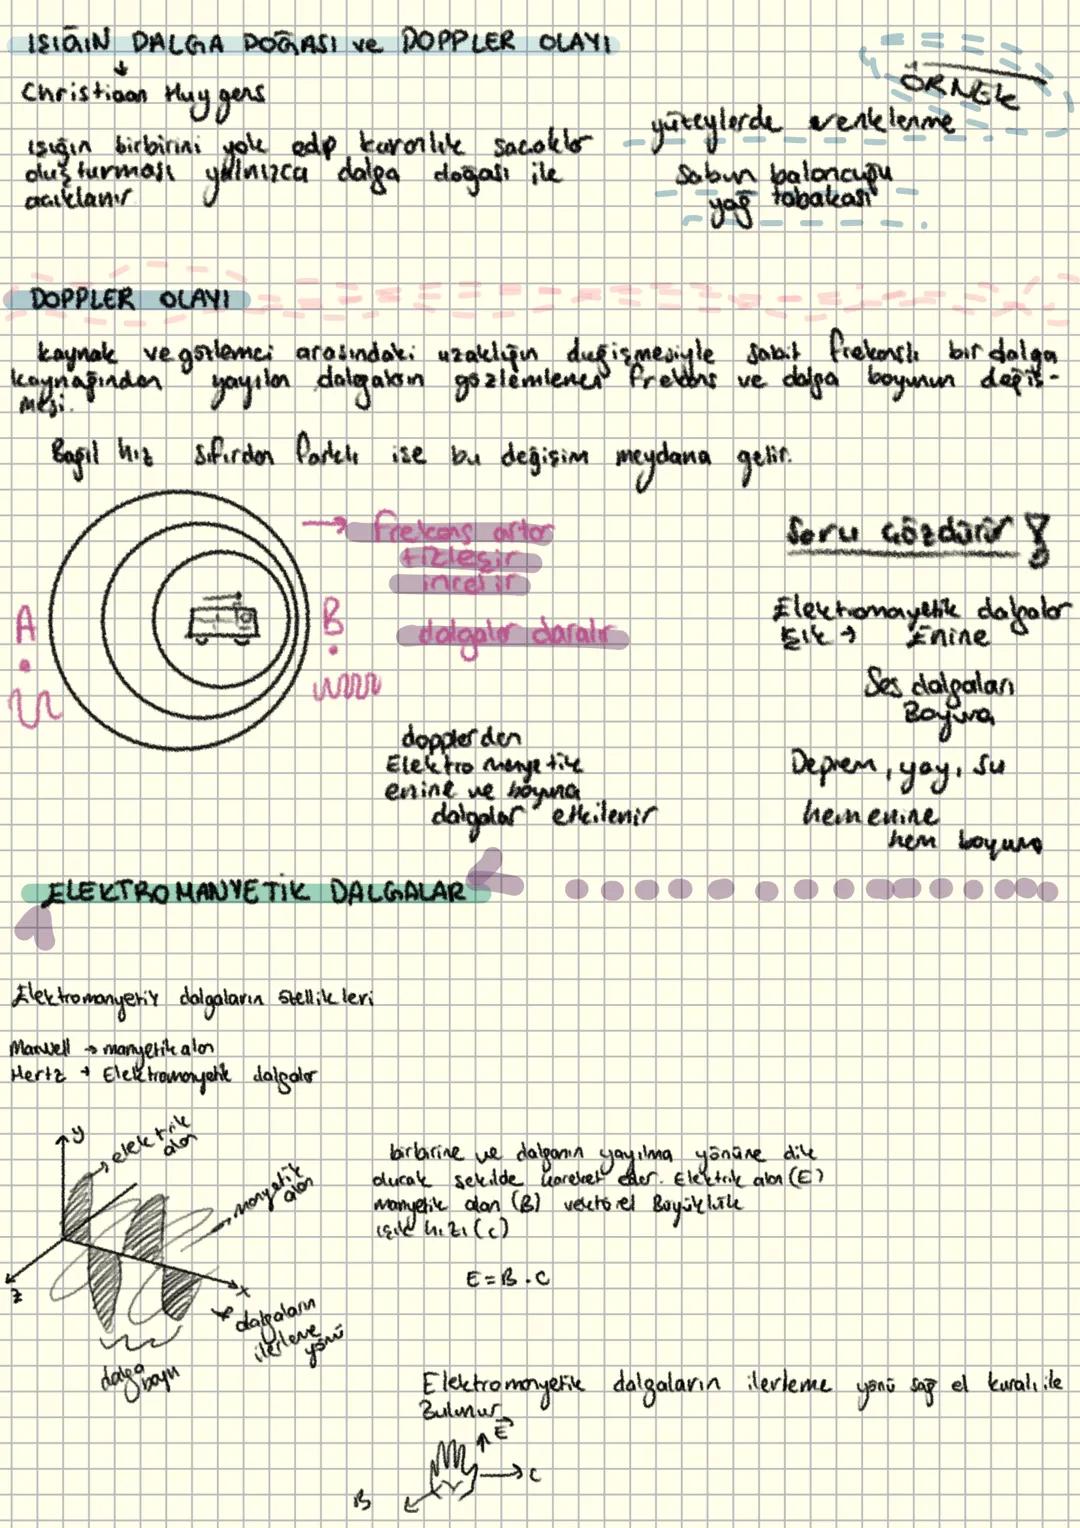 IŞIĞIN DALGA DOĞASI ve DOPPLER OLAYI
Christiaan Huygens
ışığın birbirini yok edp karanlık sacaklar
oluşturması yalnızca dalga doğası ile
acıklanır
ÖRNEK
yüzeylerde renklenme
Sabun baloncuğu
yağ tabakası
DOPPLER OLAYI
kaynak ve gözlemci arasındaki uzaklığın değişmesiyle sabit frekanslı bir dalga
kaynağından yayılan dalgaların gözlemlenen frekans ve dalga boyunun değiş-
mesi.
Bağıl hız sıfırdan farklı ise bu değişim meydana gelir.
→ frekans artar
tizleşir
incelir
dalgalar daralır
A
B
Soru Çözdürür !
Elektromanyetik dalgalar
Işık → Enine
Ses dalgaları
Boyuna
Deprem, yay, su
hem enine
hem boyuna
dopplerden
Elektro manyetik
enine ve boyuna
dalgalar etkilenir
ELEKTROMANYETİK DALGALAR
Elektromanyetik dalgaların özellikleri
Maxwell → manyetik alan
Hertz → Elektromanyetik dalgalar
y
elektrik
alan
manyetik
alan
x
z
dalgaların
ilerleme
yönü
dalga
boyu
birbirine ve dalganın yayılma yönüne dik
olucak şekilde hareket eder. Elektrik alan (E)
manyetik alan (B) vektörel Büyüklük
ışık hızı (c)
E = B . C
Elektromanyetik dalgaların ilerleme yönü sağ el kuralı ile
Bulunur
E
C
B